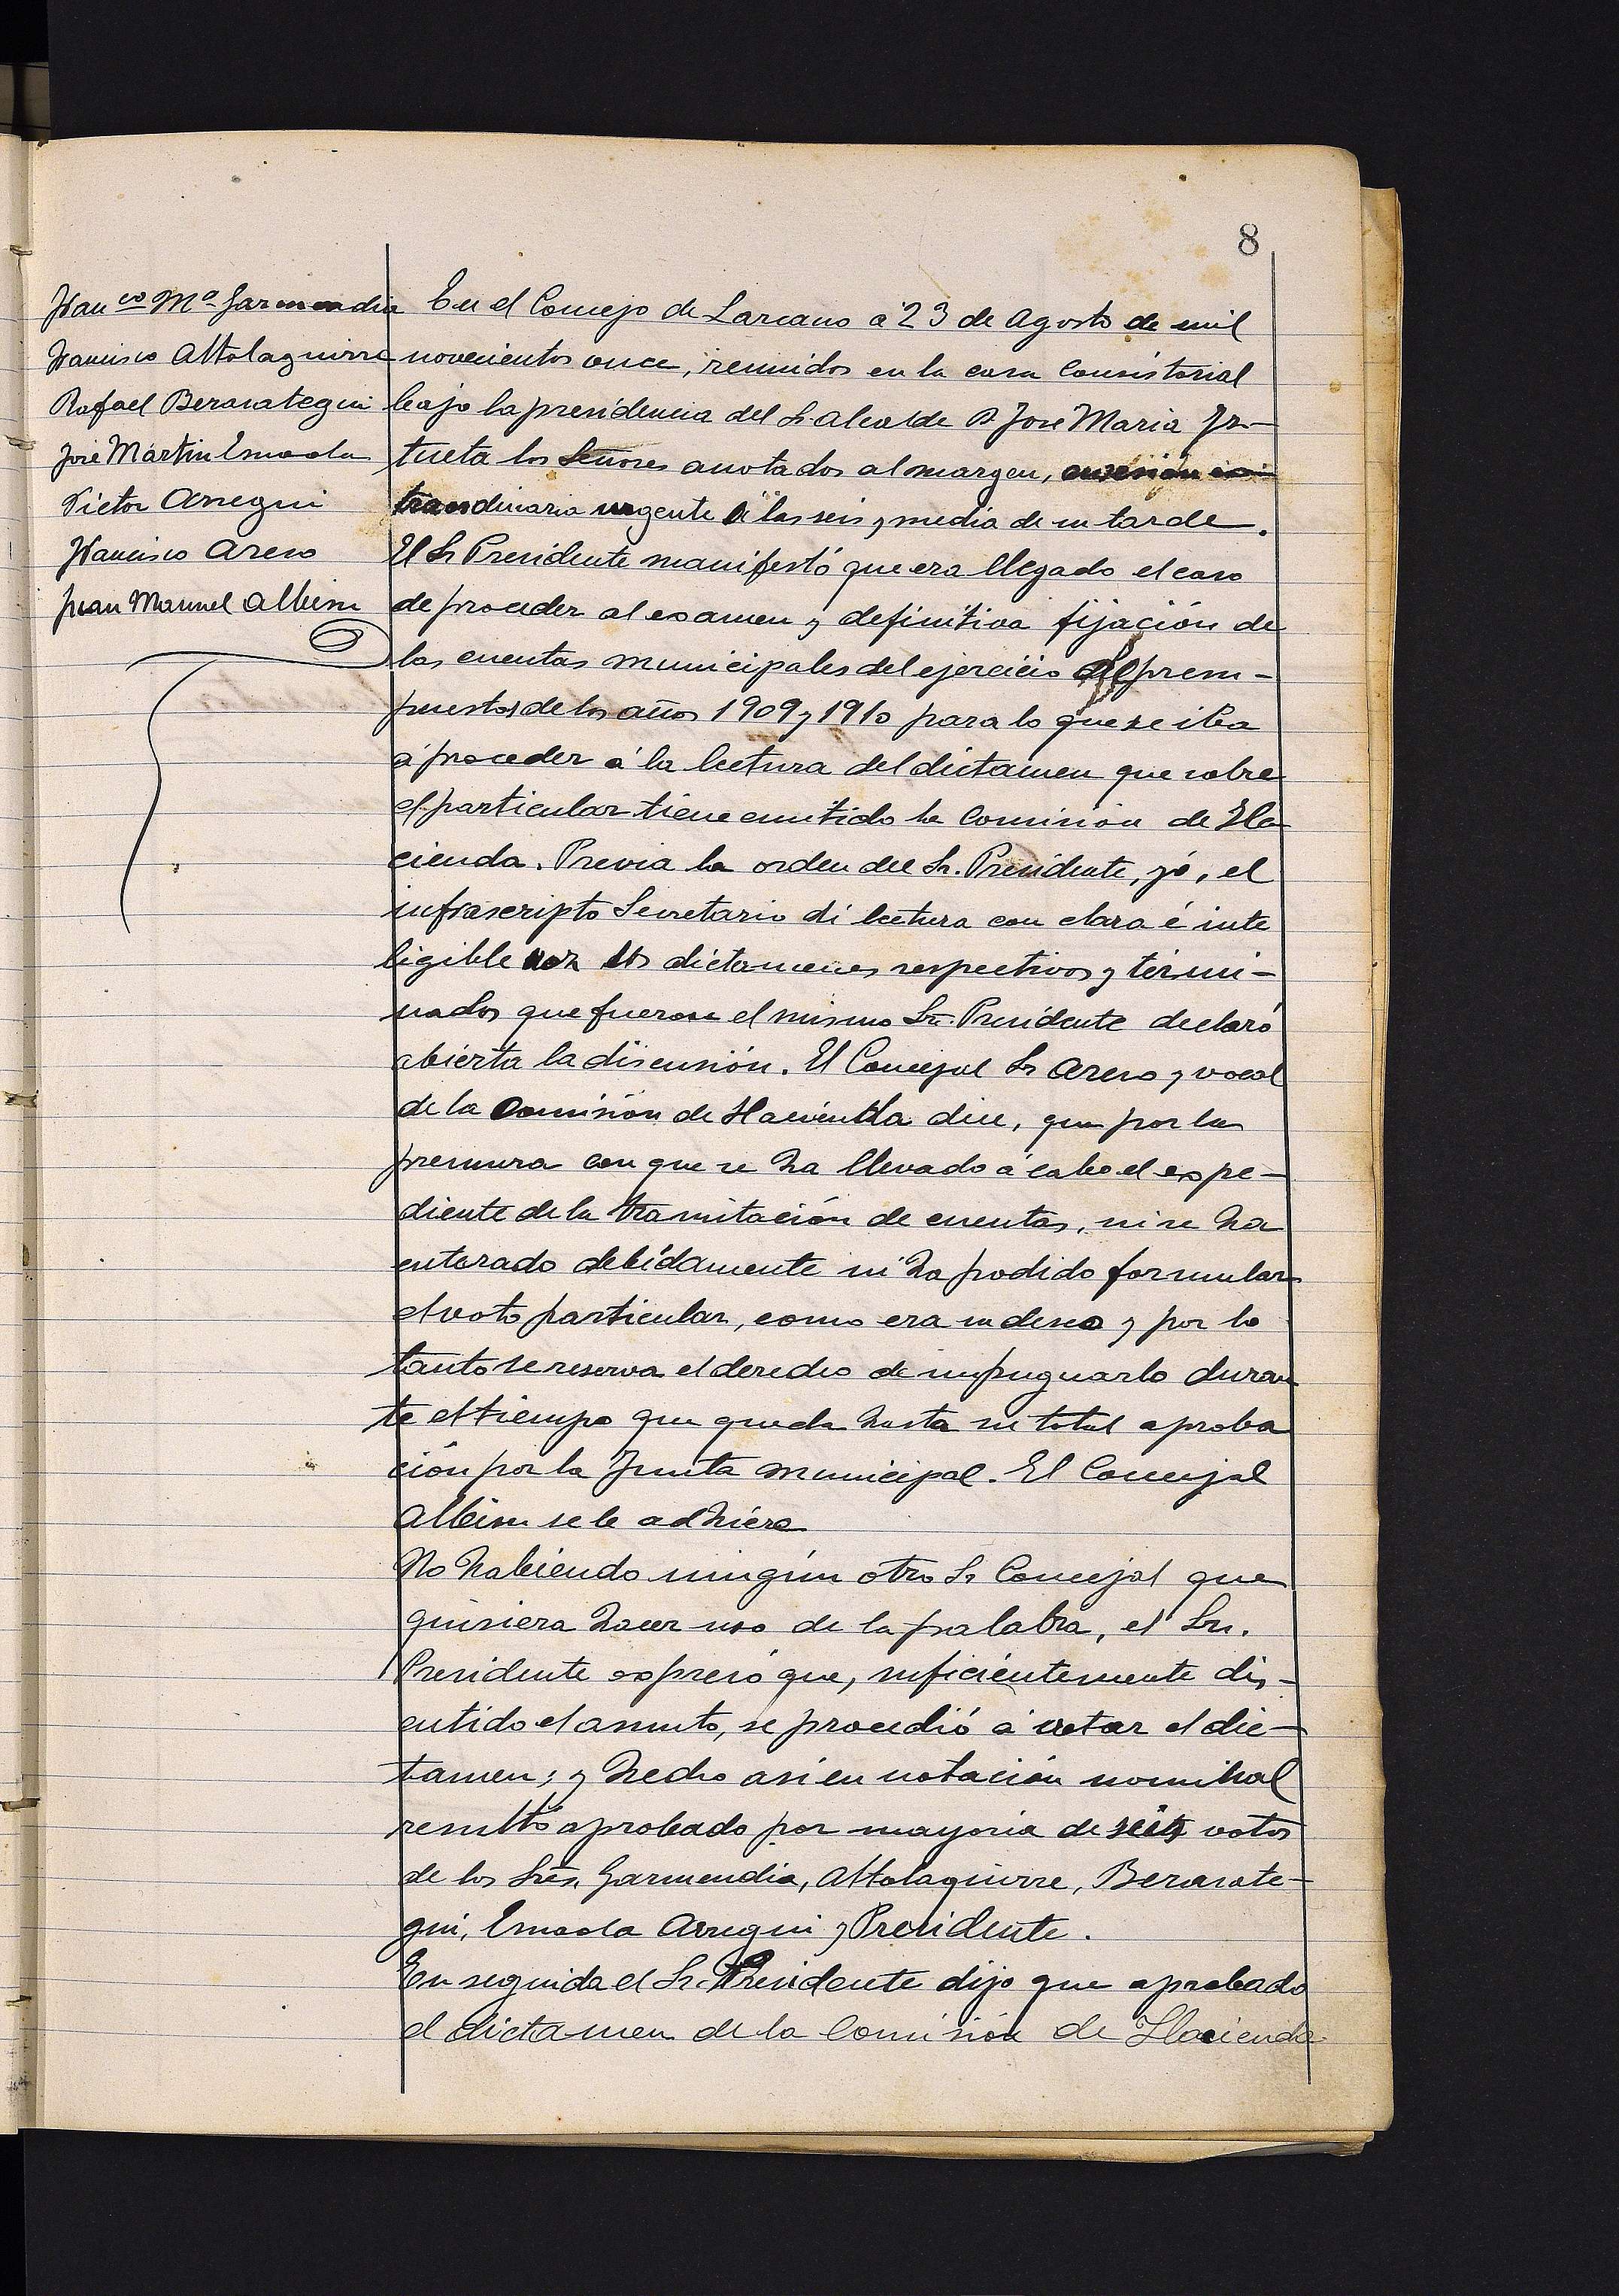 8
Franco Ma Garmendia
Francisco Altolaguirre
Rafael Berasategui
José Martin Insausti
Victor Arregui
Francisco Areso
Juan Manuel Albisu
En el Concejo de Lazcano a 23 de Agosto de mil
novecientos once, reunidos en la casa Consistorial
bajo la presidencia del Sr. Alcalde D José Maria Iz-
tueta los Señores anotados al margen, en sesión ex-
traordinaria urgente á las seis y media de su tarde.
El Sr Presidente manifestó que era llegado el caso
de proceder al examen y definitiva fijación de
las cuentas municipales del ejercicio del presu-
puestos de los años 1909 y 1910 para lo que se iba
á proceder á la lectura del dictamen que sobre
el particular tiene emitido la Comisión de Ha
cienda. Previa la orden del Sr. Presidente, yó, el
infrascripto Secretario di lectura con clara é inte
ligible voz los dictamenes respectivos y termi-
nados que fueron el mismo Sr. Presidente declaró
abierta la discusión. El Concejal Sr Areso y vocal
de la Comisión de Hacienda dice, que por la
premura con que se ha llevado á cabo el expe-
diente de la tramitación de cuentas, ni se ha
enterado debidamente ni ha podido formular
el voto particular, como era su deseo y por lo
tanto se reserva el derecho de impugnarlo duran
te el tiempo que queda hasta su total aproba
ción por la Junta municipal. El Concejal
Albisu se le adhiere
No habiendo ningún otro Sr Concejal que
quisiera hacer uso de la palabra, el Sr.
Presidente expresó que, suficientemente dis-
cutido el asunto, se procedió á votar el dic-
tamen; y hecho así en votación nominal
resultó aprobado por mayoria de seis votos
de los Sres. Garmendia, Altolaguirre, Berasate-
gui, Arregui y Presidente.
En seguida el Sr. Presidente dijo que aprobado
el dictamen de la Comisión de Hacienda